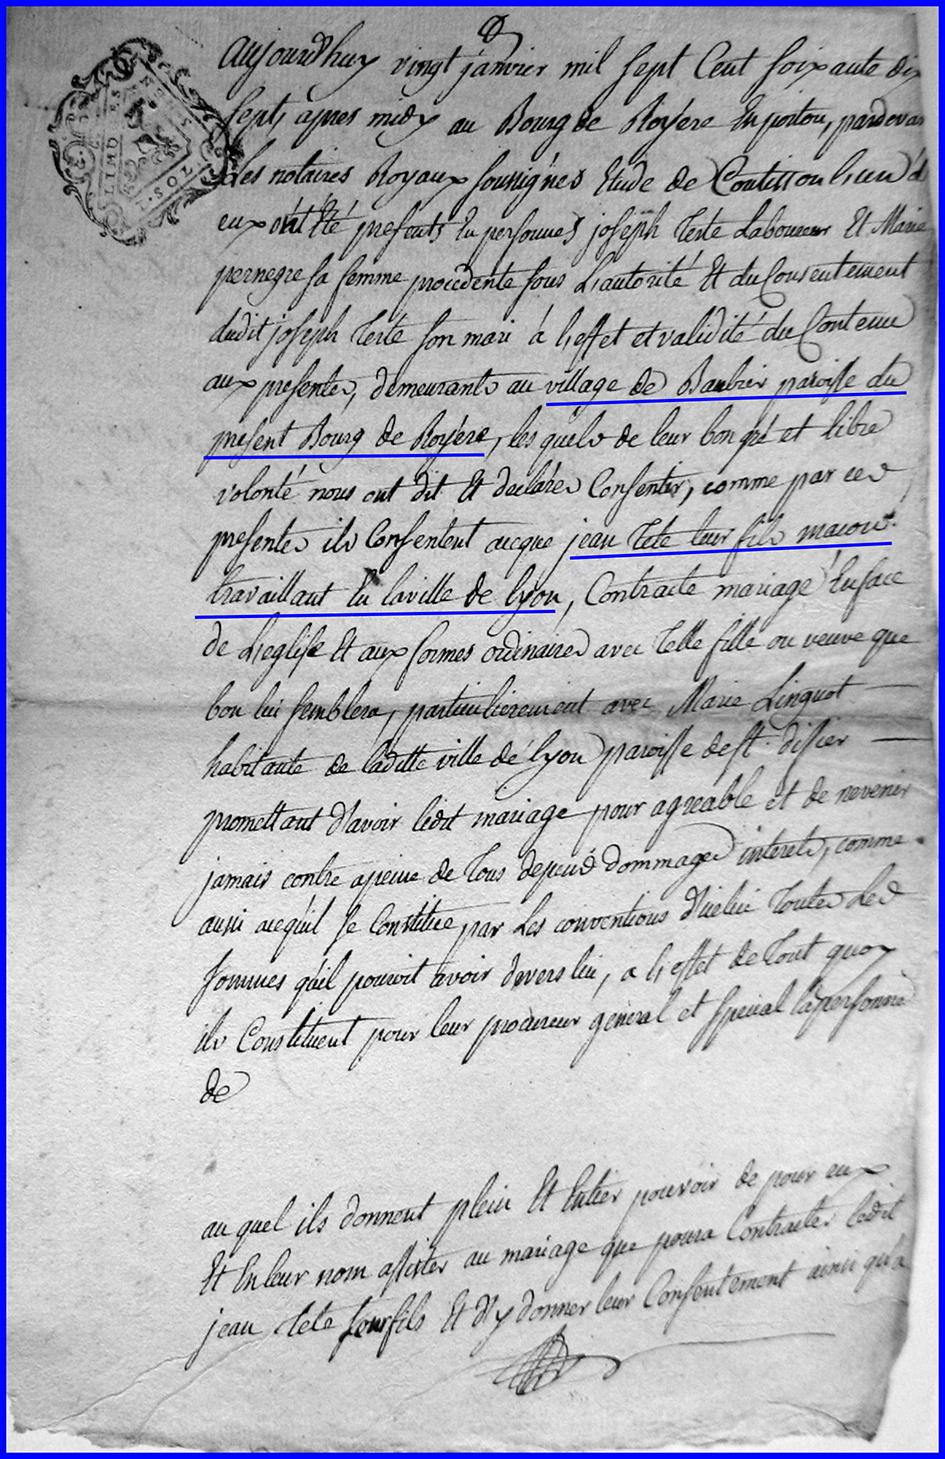 Aujourdhuy vingt janvier mil sept Cent soixante dix
sept, apres midy au Bourg de Royere En poitou, pardevan
Les notaires Royaux soussignés Etude de Coutisson l'un d
eux ont Eté presents En personnes joseph Tete Laboureur Et Marie
pernegre sa femme procedente sous L'autorité Et du Consentement
dudit joseph Tete son mari à L'effet et validité du Contenu
aux presentes, demeurants au village de Baubier paroisse du
present Bourg de Royére, lesquels de leur bon gré et libre
volonté nous ont dit Et declarés Consentir, comme par ces
presentes ils Consentent aceque jean Tete leur fils macon
travaillant En laville de lyon, Contracte mariage Enface
de L'eglise Et aux formes ordinaires avec Telle fille ou veuve que
bon lui semblera, particulierement avec Marie Linguot
habitante de laditte ville de lyon paroisse de st. disier
promettant d'avoir ledit mariage pour agreable et de nevenir
jamais contre apeine de Tous depend dommages interets, comme
aussi acequil se Constitue par Les conventions d'icelui Toutes Les
sommes qu'il pouroit avoir devers lui, a L'effet de Tout quoy
ils Constituent pour leur procureur general et special lapersonne
de
au quel ils donnent plein Et Entier pouvoir de pour eux
Et En leur nom assister au mariage que poura Contracter ledit
jean Tete leur fils Et d'y donner leur Consentement ainsi qu'a
LIMO
SOLS